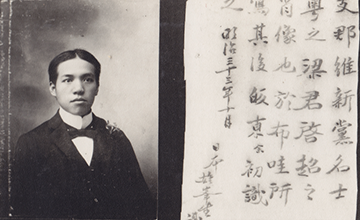 支那維新黨名士
粤之梁君啓超之
肖像也於布哇所
寫其後皈東初識
之 明治三十三年十月
日